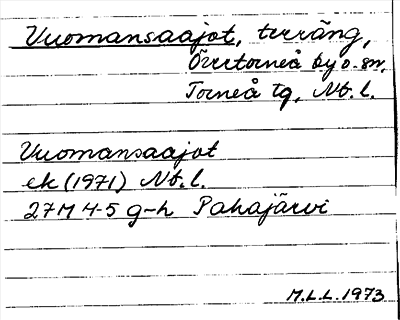 Vuomansaajot, terräng,
Övertorneå by o. sn,
Torneå tg, Nb. l.
Vuomansaajot
ek (1971) Nb. l.
27M 4-5 g-h Pahajärvi
M.L.L. 1973